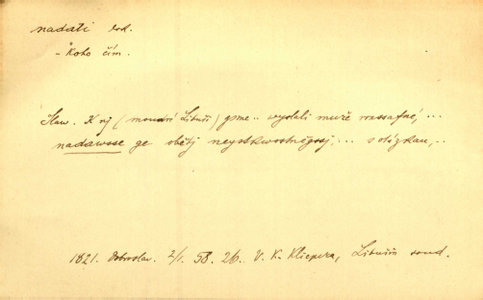 nadati dok.
- koho čím.
Slaw. K nj (moudré Libuši) gsme .. wydali muže wassafné, ...
nadawsse ge obětj neyskwostněgssj, ... s otázkau, ..
1821. Dobroslav. 2/1. 58. 26. V. K. Klicpera, Libušin soud.